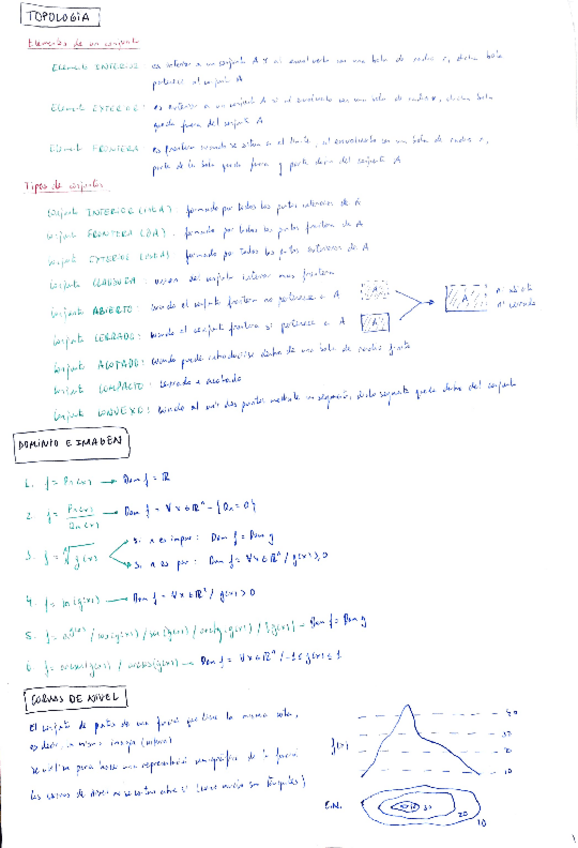 TOPOLOGÍA
Elementos de un conjunto
Elemento INTERIOR: es interior a un conjunto A si al envolverlo con una bola de radio r, dicha bola
pertenece al conjunto A
Elemento EXTERIOR: es exterior a un conjunto A si al envolverlo con una bola de radio r, dicha bola
queda fuera del conjunto A
Elemento FRONTERA: es frontera cuando se sitúa en el límite, al envolverlo con una bola de radio r,
parte de la bola queda fuera y parte dentro del conjunto A
Tipos de conjuntos
Conjunto INTERIOR: formado por todos los puntos interiores de A
Conjunto FRONTERA (∂A): formado por todos los puntos frontera de A
Conjunto EXTERIOR: formado por todos los puntos exteriores de A
Conjunto CLAUSURA: unión del conjunto interior mas frontera
Conjunto ABIERTO: cuando el conjunto frontera no pertenece a A
Conjunto CERRADO: cuando el conjunto frontera si pertenece a A
A
A
A
ni abierto
ni cerrado
Conjunto ACOTADO: cuando puede introducirse dentro de una bola de radio finito
Conjunto COMPACTO: cerrado y acotado
Conjunto CONVEXO: cuando al unir dos puntos mediante un segmento, dicho segmento queda dentro del conjunto
DOMINIO E IMAGEN
1. f = Pn(x) → Dom f = ℝ
2. f = Pn(x)/Qn(x) → Dom f = ∀x∈ℝⁿ - {Qn = 0}
3. f = ⁿ√g(x)
Si n es impar: Dom f = Dom g
Si n es par: Dom f = ∀x∈ℝⁿ / g(x) ≥ 0
4. f = ln(g(x)) → Dom f = ∀x∈ℝⁿ / g(x) > 0
5. Dom f = Dom g
6. → Dom f = ∀x∈ℝⁿ / -1 ≤ g(x) ≤ 1
CURVAS DE NIVEL
El conjunto de puntos de una función que tiene la misma cota,
es decir, la misma imagen
Se utiliza para hacer una representación de la función
Las curvas de nivel no se cortan entre sí
f(x)
40
30
20
10
C.N.
30
20
10